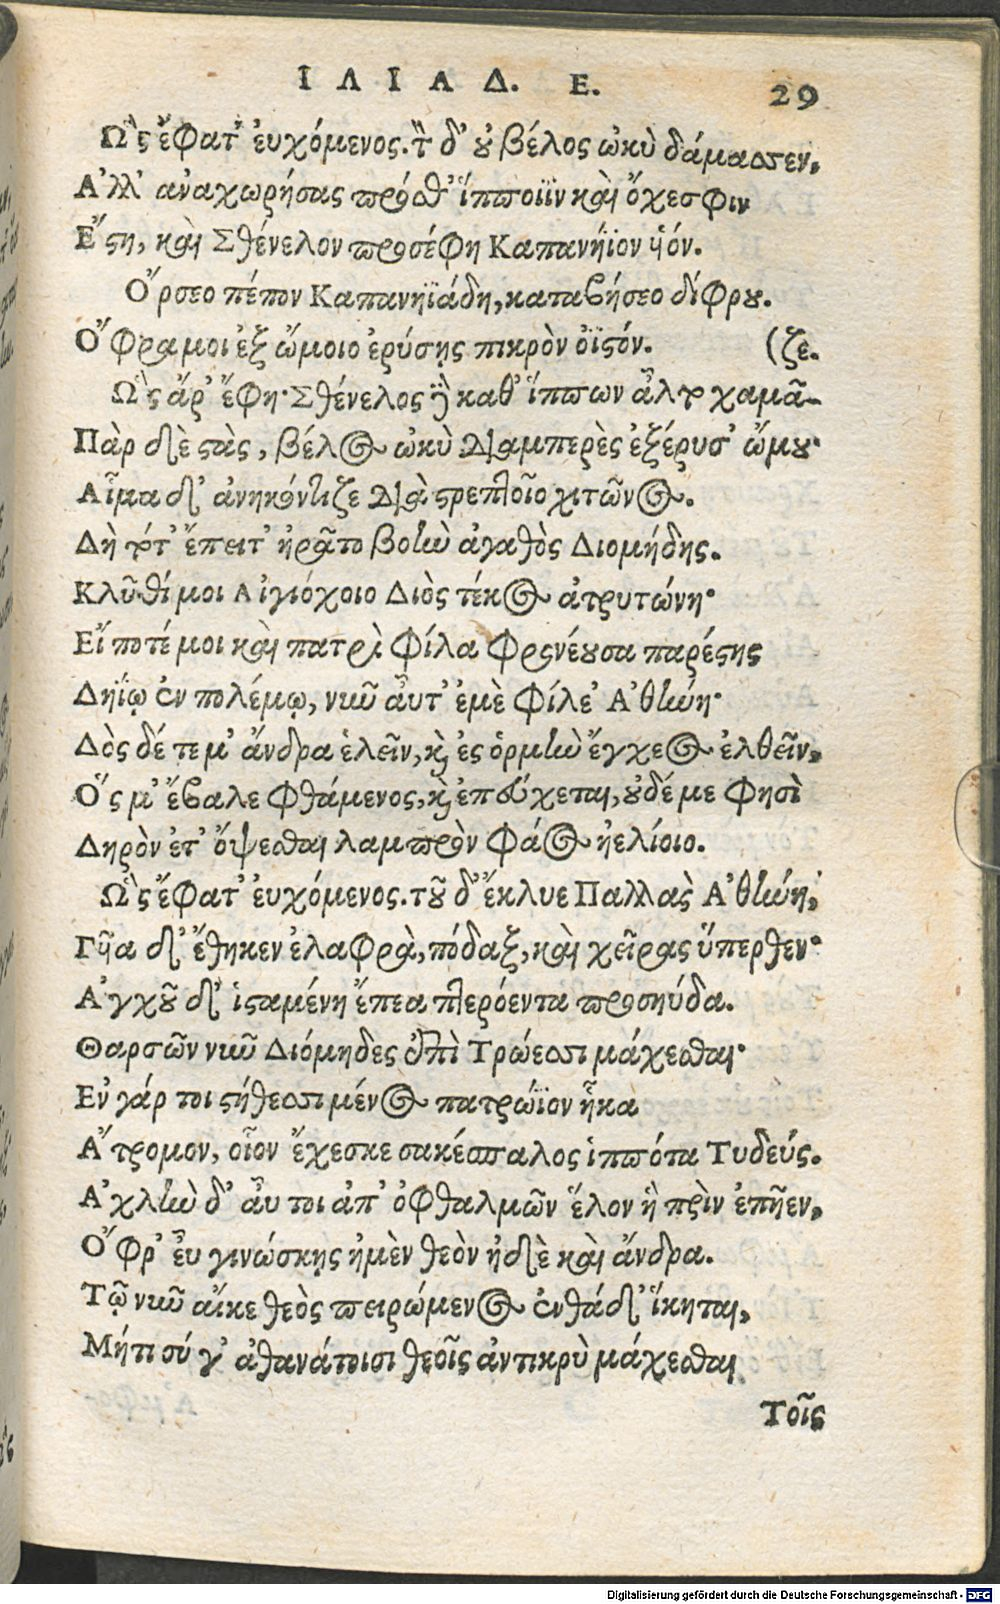 ΙΛΙΑΔ. Ε. 29
Ὣς ἔφατ' εὐχόμενος. τὸν δ' οὐ βέλος ὠκὺ δάμασσεν,
Ἀλλ' ἀναχωρήσας πρόσθ' ἵπποιϊν καὶ ὄχεσφιν
Ἔστη, καὶ Σθένελον προσέφη Καπανήϊον υἱόν.
Ὄρσεο πέπον Καπανηϊάδη, καταβήσεο δίφρου.
Ὄφρα μοι ἐξ ὤμοιο ἐρύσῃς πικρὸν ὀϊστόν. (ζε.
Ὣς ἄρ' ἔφη· Σθένελος δὲ καθ' ἵππων ἆλτο χαμᾶ-
Πὰρ δὲ στὰς, βέλος ὠκὺ διαμπερὲς ἐξέρυσ' ὤμου·
Αἷμα δ' ἀνηκόντιζε διὰ στρεπτοῖο χιτῶνος.
Δὴ τότ' ἔπειτ' ἠρᾶτο βοὴν ἀγαθὸς Διομήδης.
Κλῦθί μοι Αἰγιόχοιο Διὸς τέκος ἀτρυτώνη·
Εἴ ποτέ μοι καὶ πατρὶ φίλα φρονέουσα παρέστης
Δηΐῳ ἐν πολέμῳ, νῦν αὖτ' ἐμὲ φίλε' Ἀθήνη·
Δὸς δέ τε μ' ἄνδρα ἑλεῖν, καὶ ἐς ὁρμὴν ἔγχεος ἐλθεῖν,
Ὅς μ' ἔβαλε φθάμενος, καὶ ἐπεύχεται, οὐδέ με φησὶ
Δηρὸν ἔτ' ὄψεσθαι λαμπρὸν φάος ἠελίοιο.
Ὣς ἔφατ' εὐχόμενος. τοῦ δ' ἔκλυε Παλλὰς Ἀθήνη,
Γυῖα δ' ἔθηκεν ἐλαφρὰ, πόδας, καὶ χεῖρας ὕπερθεν·
Ἀγχοῦ δ' ἱσταμένη ἔπεα πτερόεντα προσηύδα.
Θαρσῶν νῦν Διόμηδες ἐπὶ Τρώεσσι μάχεσθαι·
Ἐν γάρ τοι στήθεσσι μένος πατρώϊον ἧκα
Ἄτρομον, οἷον ἔχεσκε σακέσπαλος ἱππότα Τυδεύς.
Ἀχλὺν δ' αὖ τοι ἀπ' ὀφθαλμῶν ἕλον ἣ πρὶν ἐπῆεν,
Ὄφρ' εὖ γινώσκῃς ἠμὲν θεὸν ἠδὲ καὶ ἄνδρα.
Τῷ νῦν αἴκε θεὸς πειρώμενος ἐνθάδ' ἵκηται,
Μήτι σύ γ' ἀθανάτοισι θεοῖς ἀντικρὺ μάχεσθαι
Τοῖς
Digitalisierung gefördert durch die Deutsche Forschungsgemeinschaft - DFG